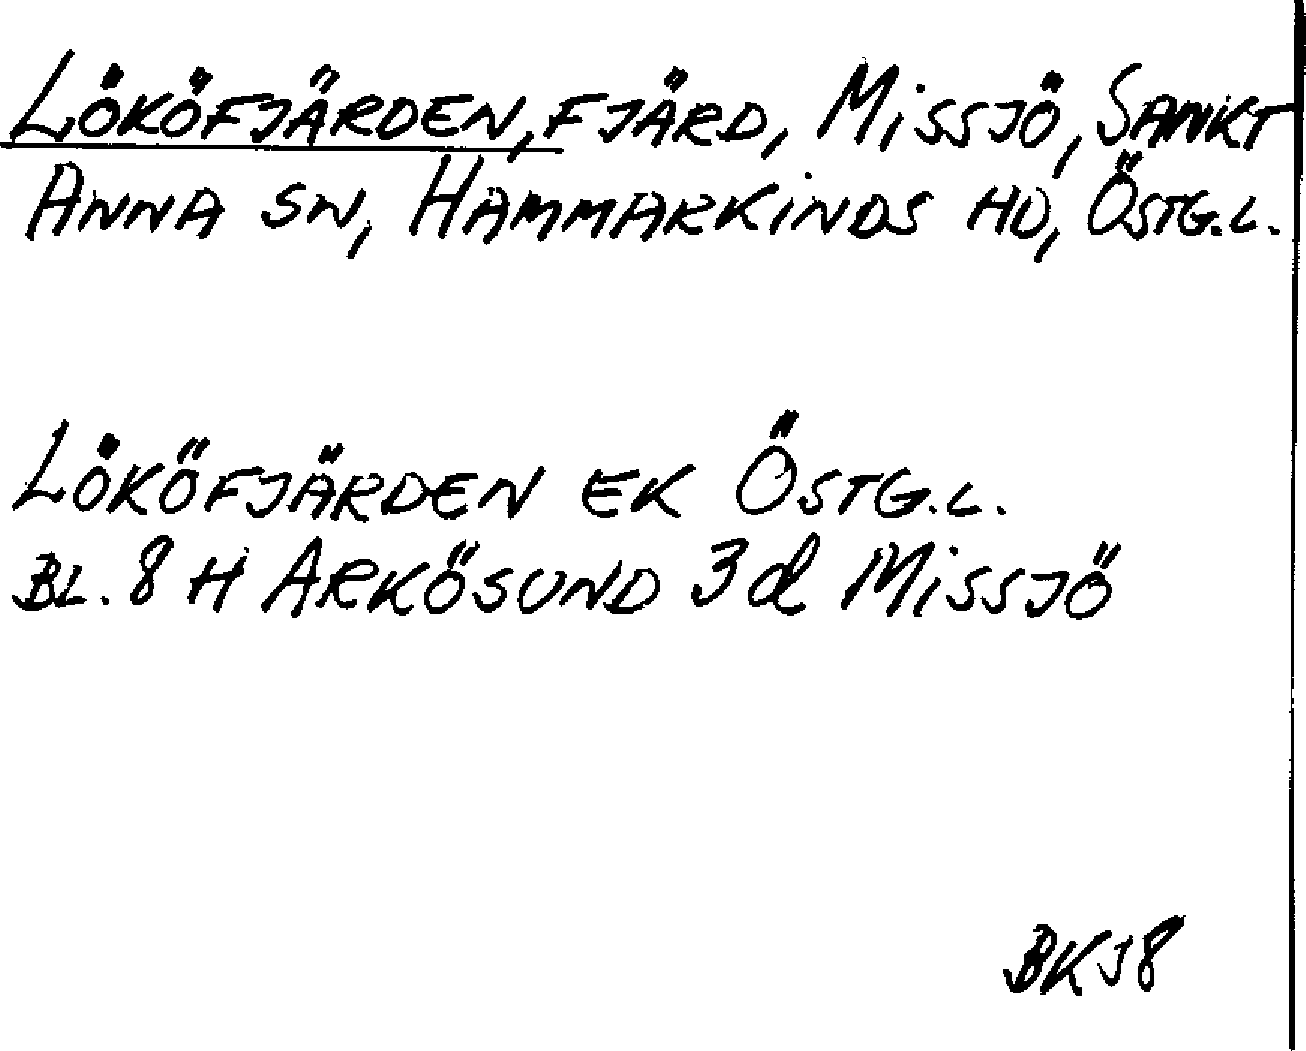 LÖKÖFJÄRDEN, FJÄRD, MiSSJÖ, SANKT
ANNA SN, HAMMARKiNDS HD, ÖSTG.L.
LÖKÖFJÄRDEN EK ÖSTG.L.
BL. 8 H ARKÖSUND 3 d MiSSJÖ
BKJ8